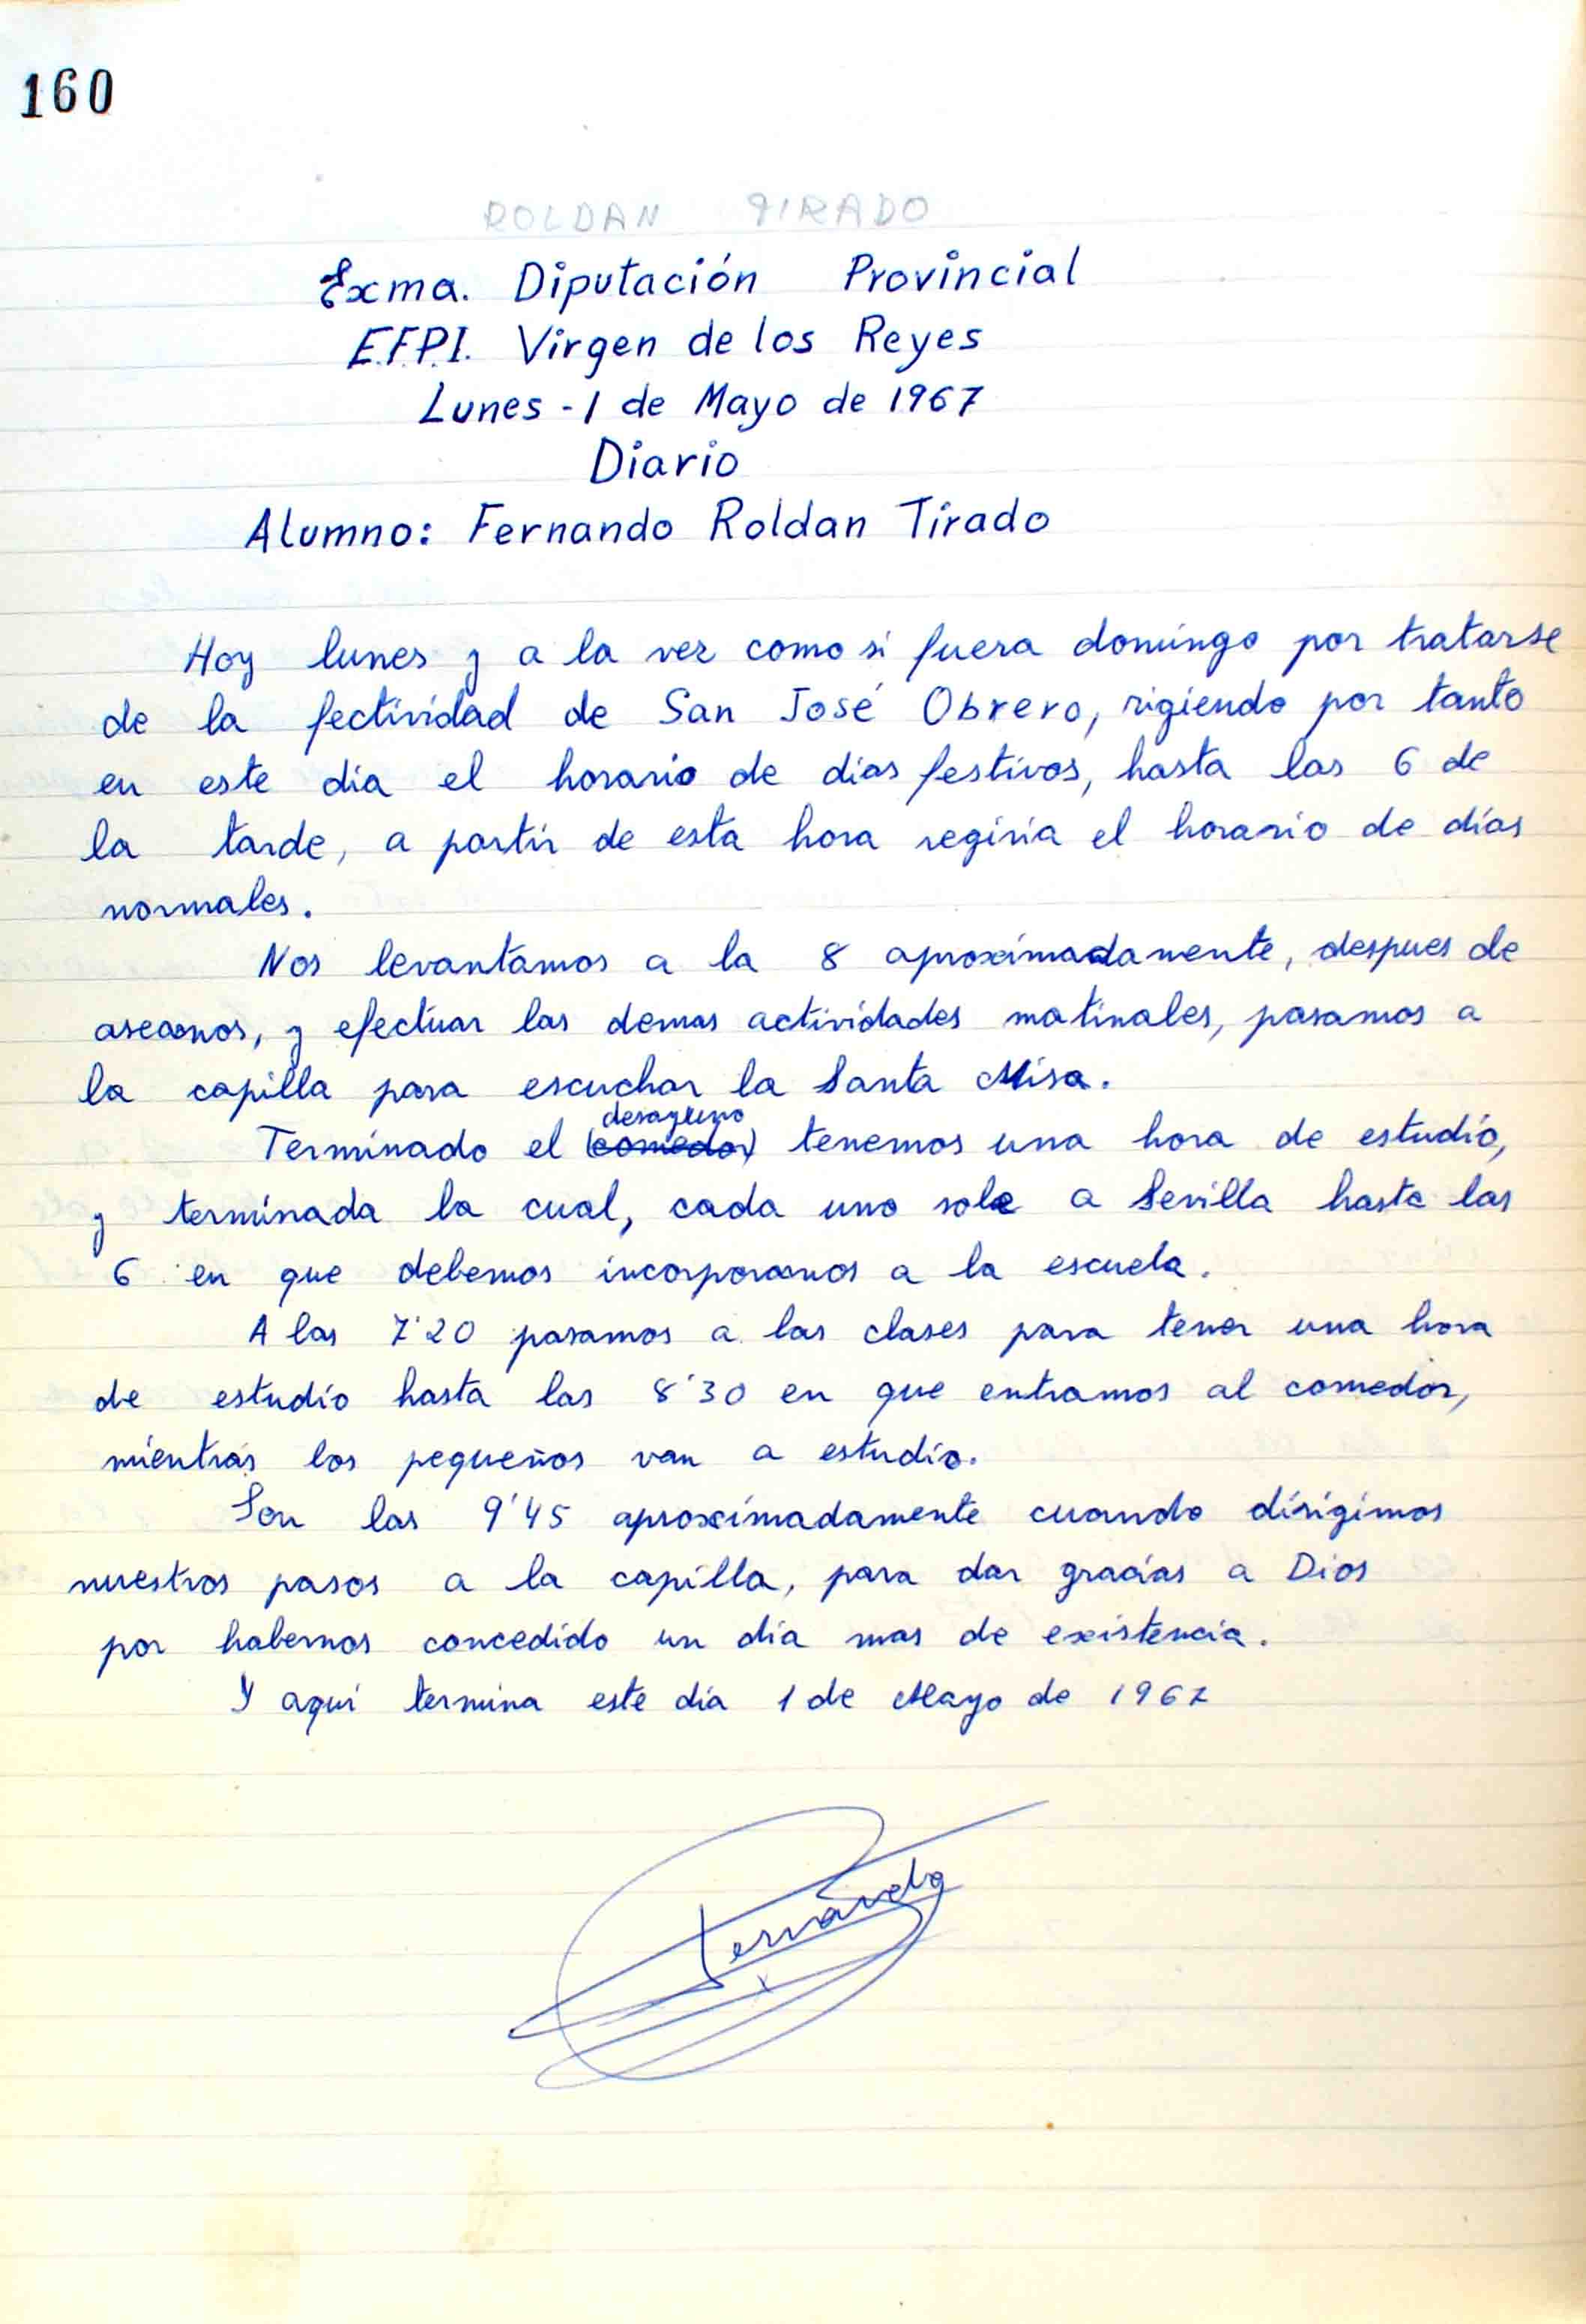 160
ROLDAN TIRADO
Exma. Diputación Provincial
E.F.P.I. Virgen de los Reyes
Lunes - 1 de Mayo de 1967
Diario
Alumno: Fernando Roldan Tirado
Hoy lunes y a la vez como si fuera domingo por tratarse
de la fectividad de San José Obrero, rigiendo por tanto
en este dia el horario de dias festivos, hasta las 6 de
la tarde, a partir de esta hora regiria el horario de días
normales.
Nos levantamos a la 8 aproximadamente, despues de
asearnos, y efectuar las demas actividades matinales, pasamos a
la capilla para escuchar la Santa Misa.
desayuno
Terminado el (comedor) tenemos una hora de estudio,
y terminada la cual, cada uno sale a Sevilla hasta las
6 en que debemos incorporarnos a la escuela.
A las 7'20 pasamos a las clases para tener una hora
de estudio hasta las 8'30 en que entramos al comedor,
mientras los pequeños van a estudio.
Son las 9'45 aproximadamente cuando dirigimos
nuestros pasos a la capilla, para dar gracias a Dios
por habernos concedido un dia mas de existencia.
Y aqui termina este dia 1 de Mayo de 1967
Fernando